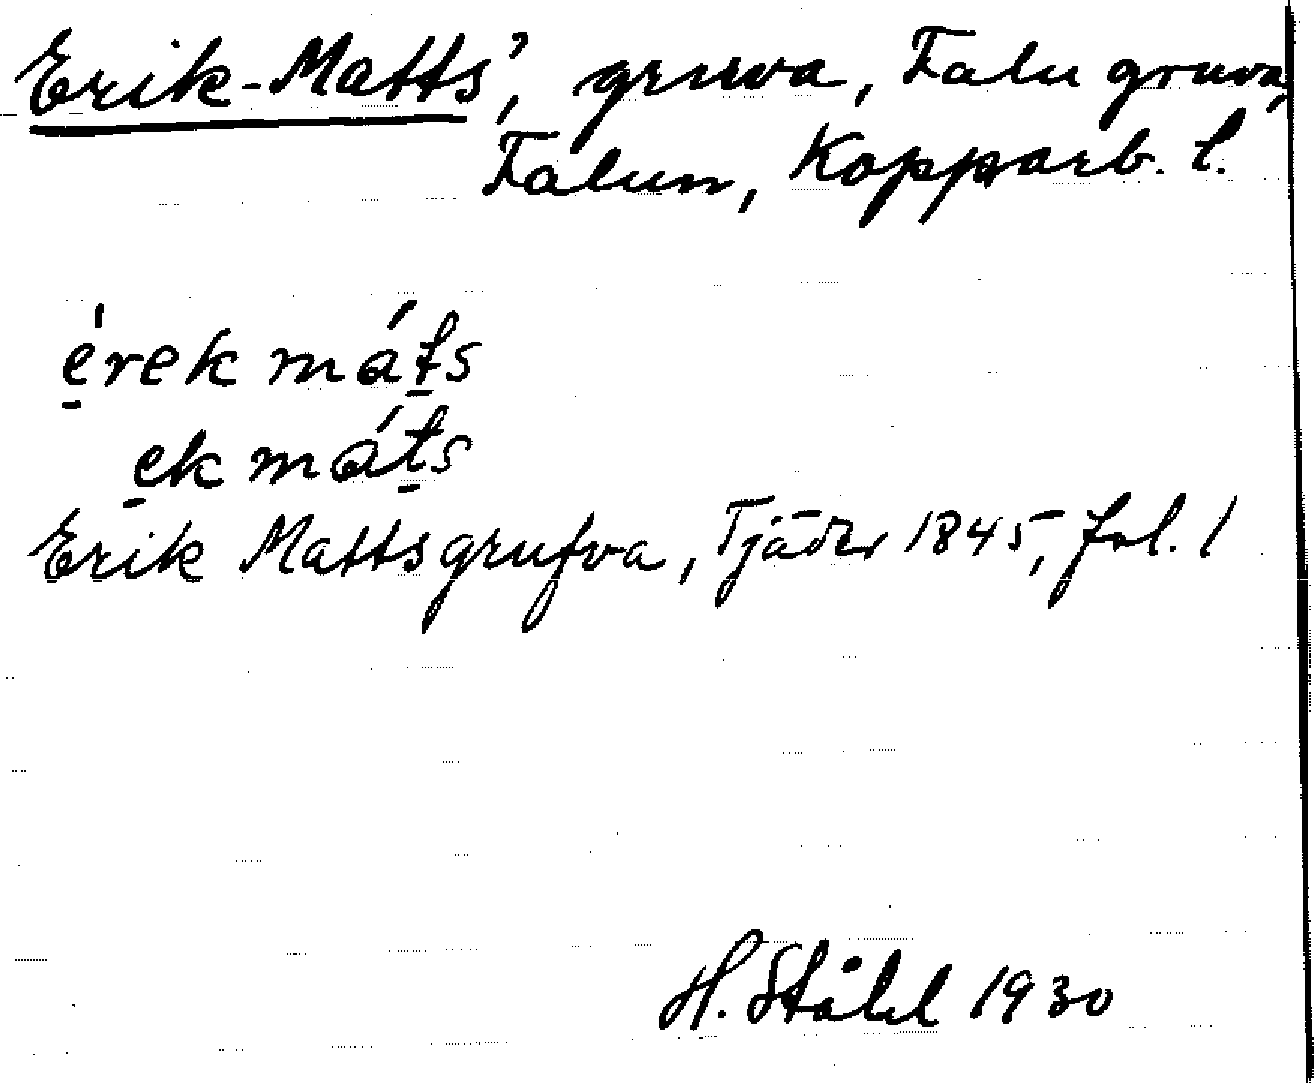 Erik-Matts’, gruva, Falu gruva,
Falun, Kopparb. l.
é̱rek mát̠s
e̱k mát̠s
Erik Mattsgrufva, Tjäder 1845, fol. 1
H. Ståhl 1930